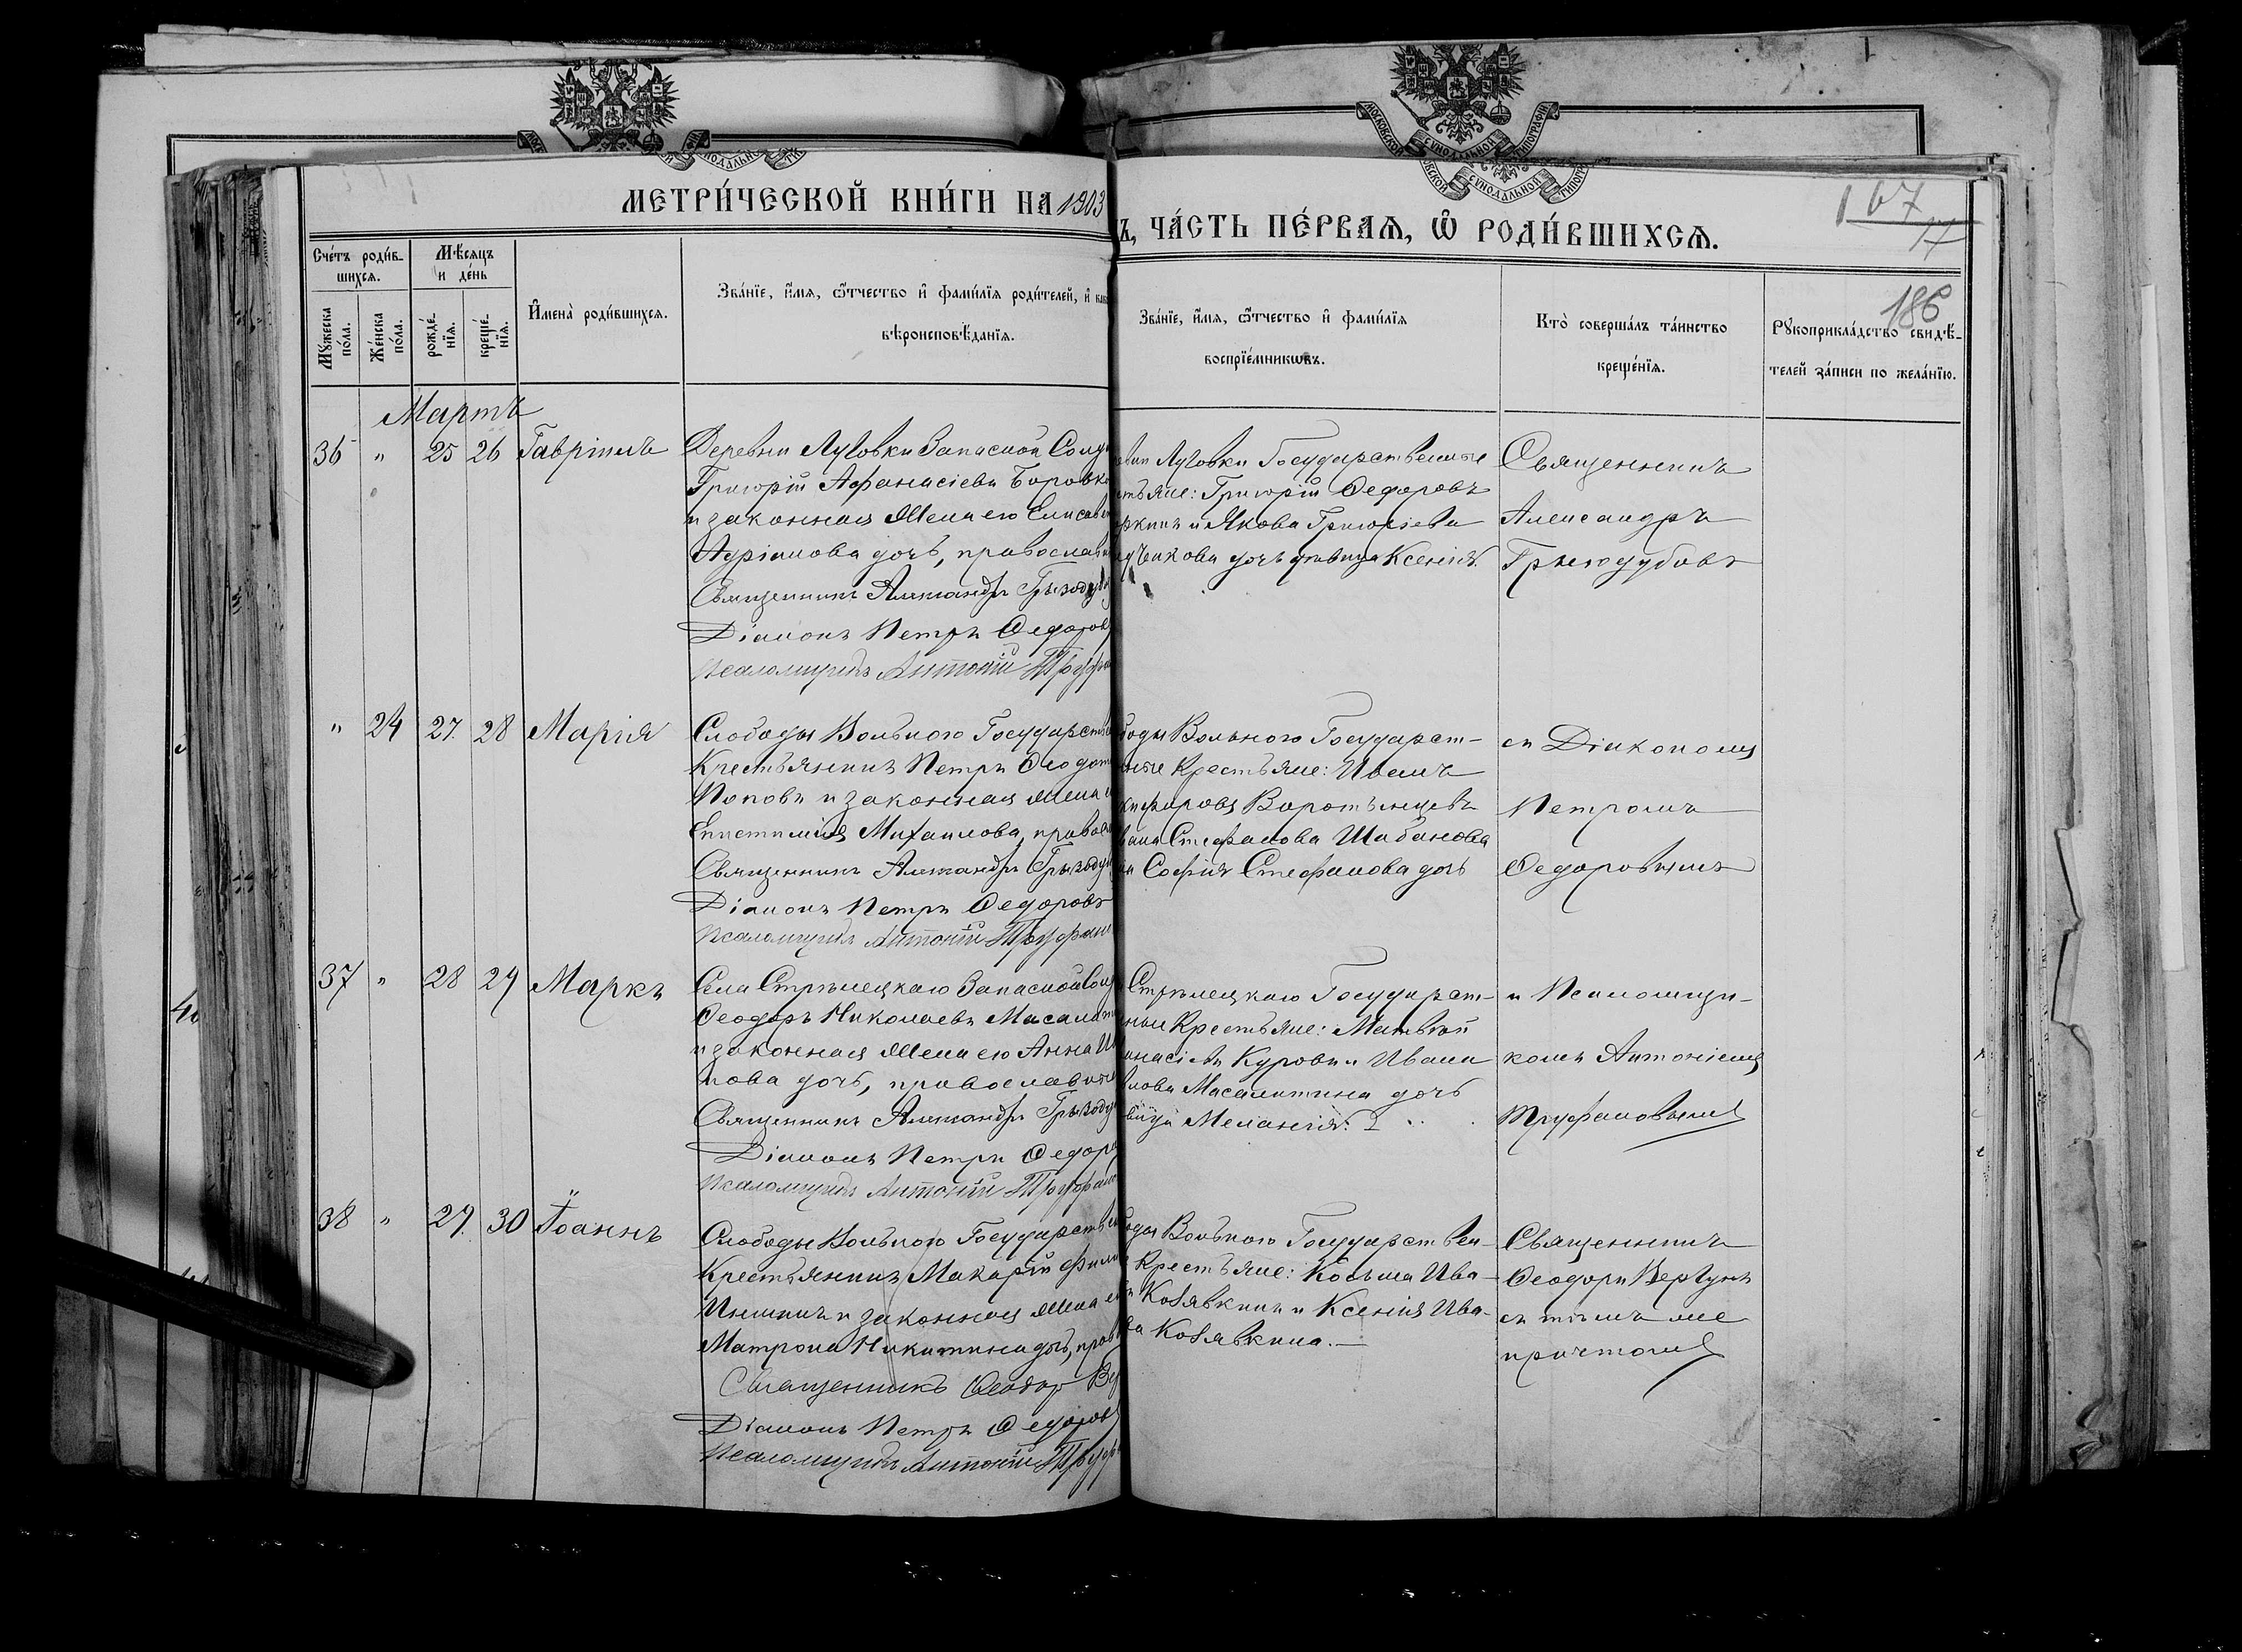 МЕТРИ́ЧЕСКОЙ КНИ́ГИ НА 1903
Ъ, ЧА́СТЬ ПЕ́РВАѦ, Ѿ РОДИ́ВШИХСѦ.
167
17
186
Сче́тъ роди́в-
шихсѧ.
Мѣ́сѧцъ
и де́нь
Мꙋ́жеска
по́ла.
Же́нска
по́ла.
рожде́-
нїѧ.
креще́-
нїѧ.
И҆мена̀ роди́вшихсѧ.
Зва́нїе, и҆́мѧ, ѻ҆́тчество и҆ фами́лїѧ роди́телей, и҆
вѣроисповѣ́данїѧ.
Зва́нїе, и҆́мѧ, ѻ҆́тчество и҆ фами́лїѧ
воспрїе́мникѡвъ.
Кто̀ соверша́лъ та́инство
креще́нїѧ.
Рꙋкоприкла́дство свидѣ́-
телей за́писи по жела́нїю.
Мартъ
36 " 25 26 Гавріилъ
Деревни Луговки Запасной Солд
Григорій Афанасіевъ Боровко
и законная жена его Елисаве
Адріанова дочь, православн
Священникъ Александръ Грызоду
Діаконъ Петръ Ѳедоров
Псаломщикъ Антоній Труфа
евни Луговки Государственные
стьяне: Григорій Ѳедоровъ
ркинъ и Якова Григоріева
дченкова дочь дѣвица Ксенія.
Священникъ
Александръ
Грызодубовъ
" 24 27. 28 Марія
Слободы Вольного Государств
Крестьянинъ Петръ Ѳеодот
Поповъ и законная жена
Епистимія Михаилова, правос
Священникъ Александръ Грызоду
Діаконъ Петръ Ѳедоровъ
Псаломщикъ Антоній Труфан
боды Вольного Государст-
нные Крестьяне: Иванъ
кифоровъ Воротынцевъ
вана Стефанова Шабанова
на Софія Стефанова дочь
съ Діакономъ
Петромъ
Ѳедоровымъ
37 " 28 29 Маркъ
Села Стрѣлецкаго Запасной Сол
Ѳеодоръ Николаевъ Масалит
и законная жена его Анна И
нова дочь, православные
Священникъ Александръ Грызоду
Діаконъ Петръ Ѳедоро
Псаломщикъ Антоній Труфано
Стрѣлецкаго Государст-
нные Крестьяне: Матвѣй
анасіевъ Куровъ и Ивана
лова Масалитина дочь
вица Меланія.
и Псаломщи-
комъ Антоніемъ
Труфановымъ
38 " 29. 30 Іоаннъ
Слободы Вольного Государствен
Крестьянинъ Макарій Фили
Иншинъ и законная жена е
Матрона Никитина дочь, прав
Священникъ Ѳеодоръ Вер
Діаконъ Петръ Ѳедоров
Псаломщикъ Антоній Труф
боды Вольного Государствен-
Крестьяне: Косьма Ива-
въ Козявкинъ и Ксенія Ива-
ва Козявкина.—
Священникъ
Ѳеодоръ Вергунъ
съ тѣмъ же
причтомъ